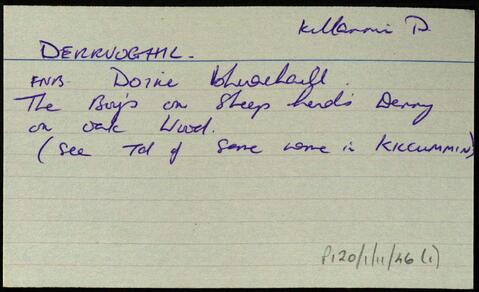 Killarney P.
DERRVOGHIL.
FNB Doire bhuachaill.
The Boy's or Sheep herd's Derry
or oak Wood.
(See Td of same name in KILCUMMIN)
P120/1/11/46 (1)